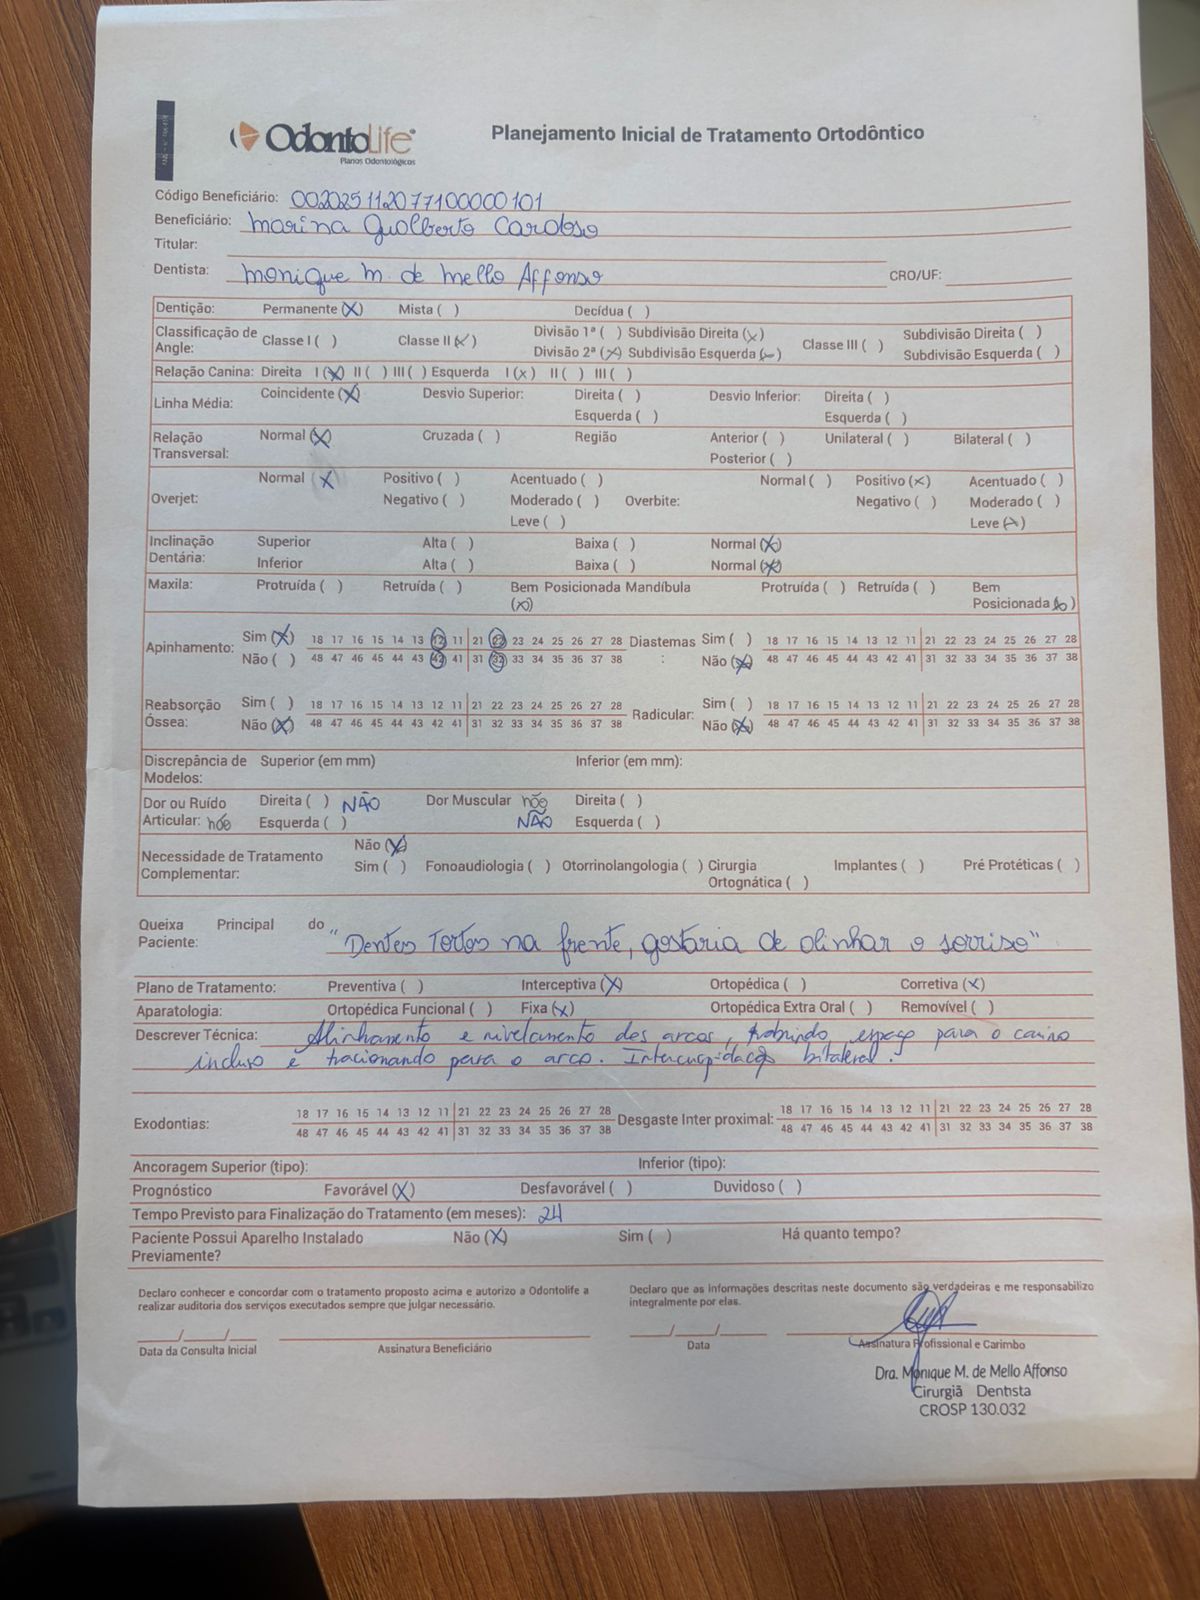 OdontoLife
Planos Odontológicos
Planejamento Inicial de Tratamento Ortodôntico
Código Beneficiário: 002025112077100000101
Beneficiário: Marina Gualberto Cardoso
Titular:
Dentista: Monique M. de Mello Affonso CRO/UF:
Dentição: Permanente (X) Mista ( ) Decídua ( )
Classificação de Angle: Classe I ( ) Classe II (X) Divisão 1ª ( ) Subdivisão Direita (X) Classe III ( ) Subdivisão Direita ( )
Divisão 2ª (X) Subdivisão Esquerda (X) Subdivisão Esquerda ( )
Relação Canina: Direita I (X) II ( ) III ( ) Esquerda I (X) II ( ) III ( )
Linha Média: Coincidente (X) Desvio Superior: Direita ( ) Desvio Inferior: Direita ( )
Esquerda ( ) Esquerda ( )
Relação Transversal: Normal (X) Cruzada ( ) Região Anterior ( ) Unilateral ( ) Bilateral ( )
Posterior ( )
Overjet: Normal (X) Positivo ( ) Acentuado ( ) Overbite: Normal ( ) Positivo (X) Acentuado ( )
Negativo ( ) Moderado ( ) Negativo ( ) Moderado ( )
Leve ( ) Leve (X)
Inclinação Dentária: Superior Alta ( ) Baixa ( ) Normal (X)
Inferior Alta ( ) Baixa ( ) Normal (X)
Maxila: Protruída ( ) Retruída ( ) Bem Posicionada (X) Mandíbula Protruída ( ) Retruída ( ) Bem Posicionada (X)
Apinhamento: Sim (X) 18 17 16 15 14 13 12 11 21 22 23 24 25 26 27 28 Diastemas: Sim ( ) 18 17 16 15 14 13 12 11 21 22 23 24 25 26 27 28
Não ( ) 48 47 46 45 44 43 42 41 31 32 33 34 35 36 37 38 Não (X) 48 47 46 45 44 43 42 41 31 32 33 34 35 36 37 38
Reabsorção Óssea: Sim ( ) 18 17 16 15 14 13 12 11 21 22 23 24 25 26 27 28 Radicular: Sim ( ) 18 17 16 15 14 13 12 11 21 22 23 24 25 26 27 28
Não (X) 48 47 46 45 44 43 42 41 31 32 33 34 35 36 37 38 Não (X) 48 47 46 45 44 43 42 41 31 32 33 34 35 36 37 38
Discrepância de Modelos: Superior (em mm) Inferior (em mm):
Dor ou Ruído Direita ( ) NÃO Dor Muscular não Direita ( )
Articular: não Esquerda ( ) NÃO Esquerda ( )
Necessidade de Tratamento Complementar: Não (X)
Sim ( ) Fonoaudiologia ( ) Otorrinolangologia ( ) Cirurgia Ortognática ( ) Implantes ( ) Pré Protéticas ( )
Queixa Principal do Paciente: "Dentes Tortos na frente, gostaria de alinhar o sorriso"
Plano de Tratamento: Preventiva ( ) Interceptiva (X) Ortopédica ( ) Corretiva (X)
Aparatologia: Ortopédica Funcional ( ) Fixa (X) Ortopédica Extra Oral ( ) Removível ( )
Descrever Técnica: Alinhamento e nivelamento dos arcos, espaço para o canino
incluso e tracionando para o arco. bilateral.
Exodontias: 18 17 16 15 14 13 12 11 21 22 23 24 25 26 27 28 Desgaste Inter proximal: 18 17 16 15 14 13 12 11 21 22 23 24 25 26 27 28
48 47 46 45 44 43 42 41 31 32 33 34 35 36 37 38 48 47 46 45 44 43 42 41 31 32 33 34 35 36 37 38
Ancoragem Superior (tipo): Inferior (tipo):
Prognóstico Favorável (X) Desfavorável ( ) Duvidoso ( )
Tempo Previsto para Finalização do Tratamento (em meses): 24
Paciente Possui Aparelho Instalado Previamente? Não (X) Sim ( ) Há quanto tempo?
Declaro conhecer e concordar com o tratamento proposto acima e autorizo a Odontolife a
realizar auditoria dos serviços executados sempre que julgar necessário.
Declaro que as informações descritas neste documento são verdadeiras e me responsabilizo
integralmente por elas.
Data da Consulta Inicial Assinatura Beneficiário Data Assinatura Profissional e Carimbo
Dra. Monique M. de Mello Affonso
Cirurgiã Dentista
CROSP 130.032